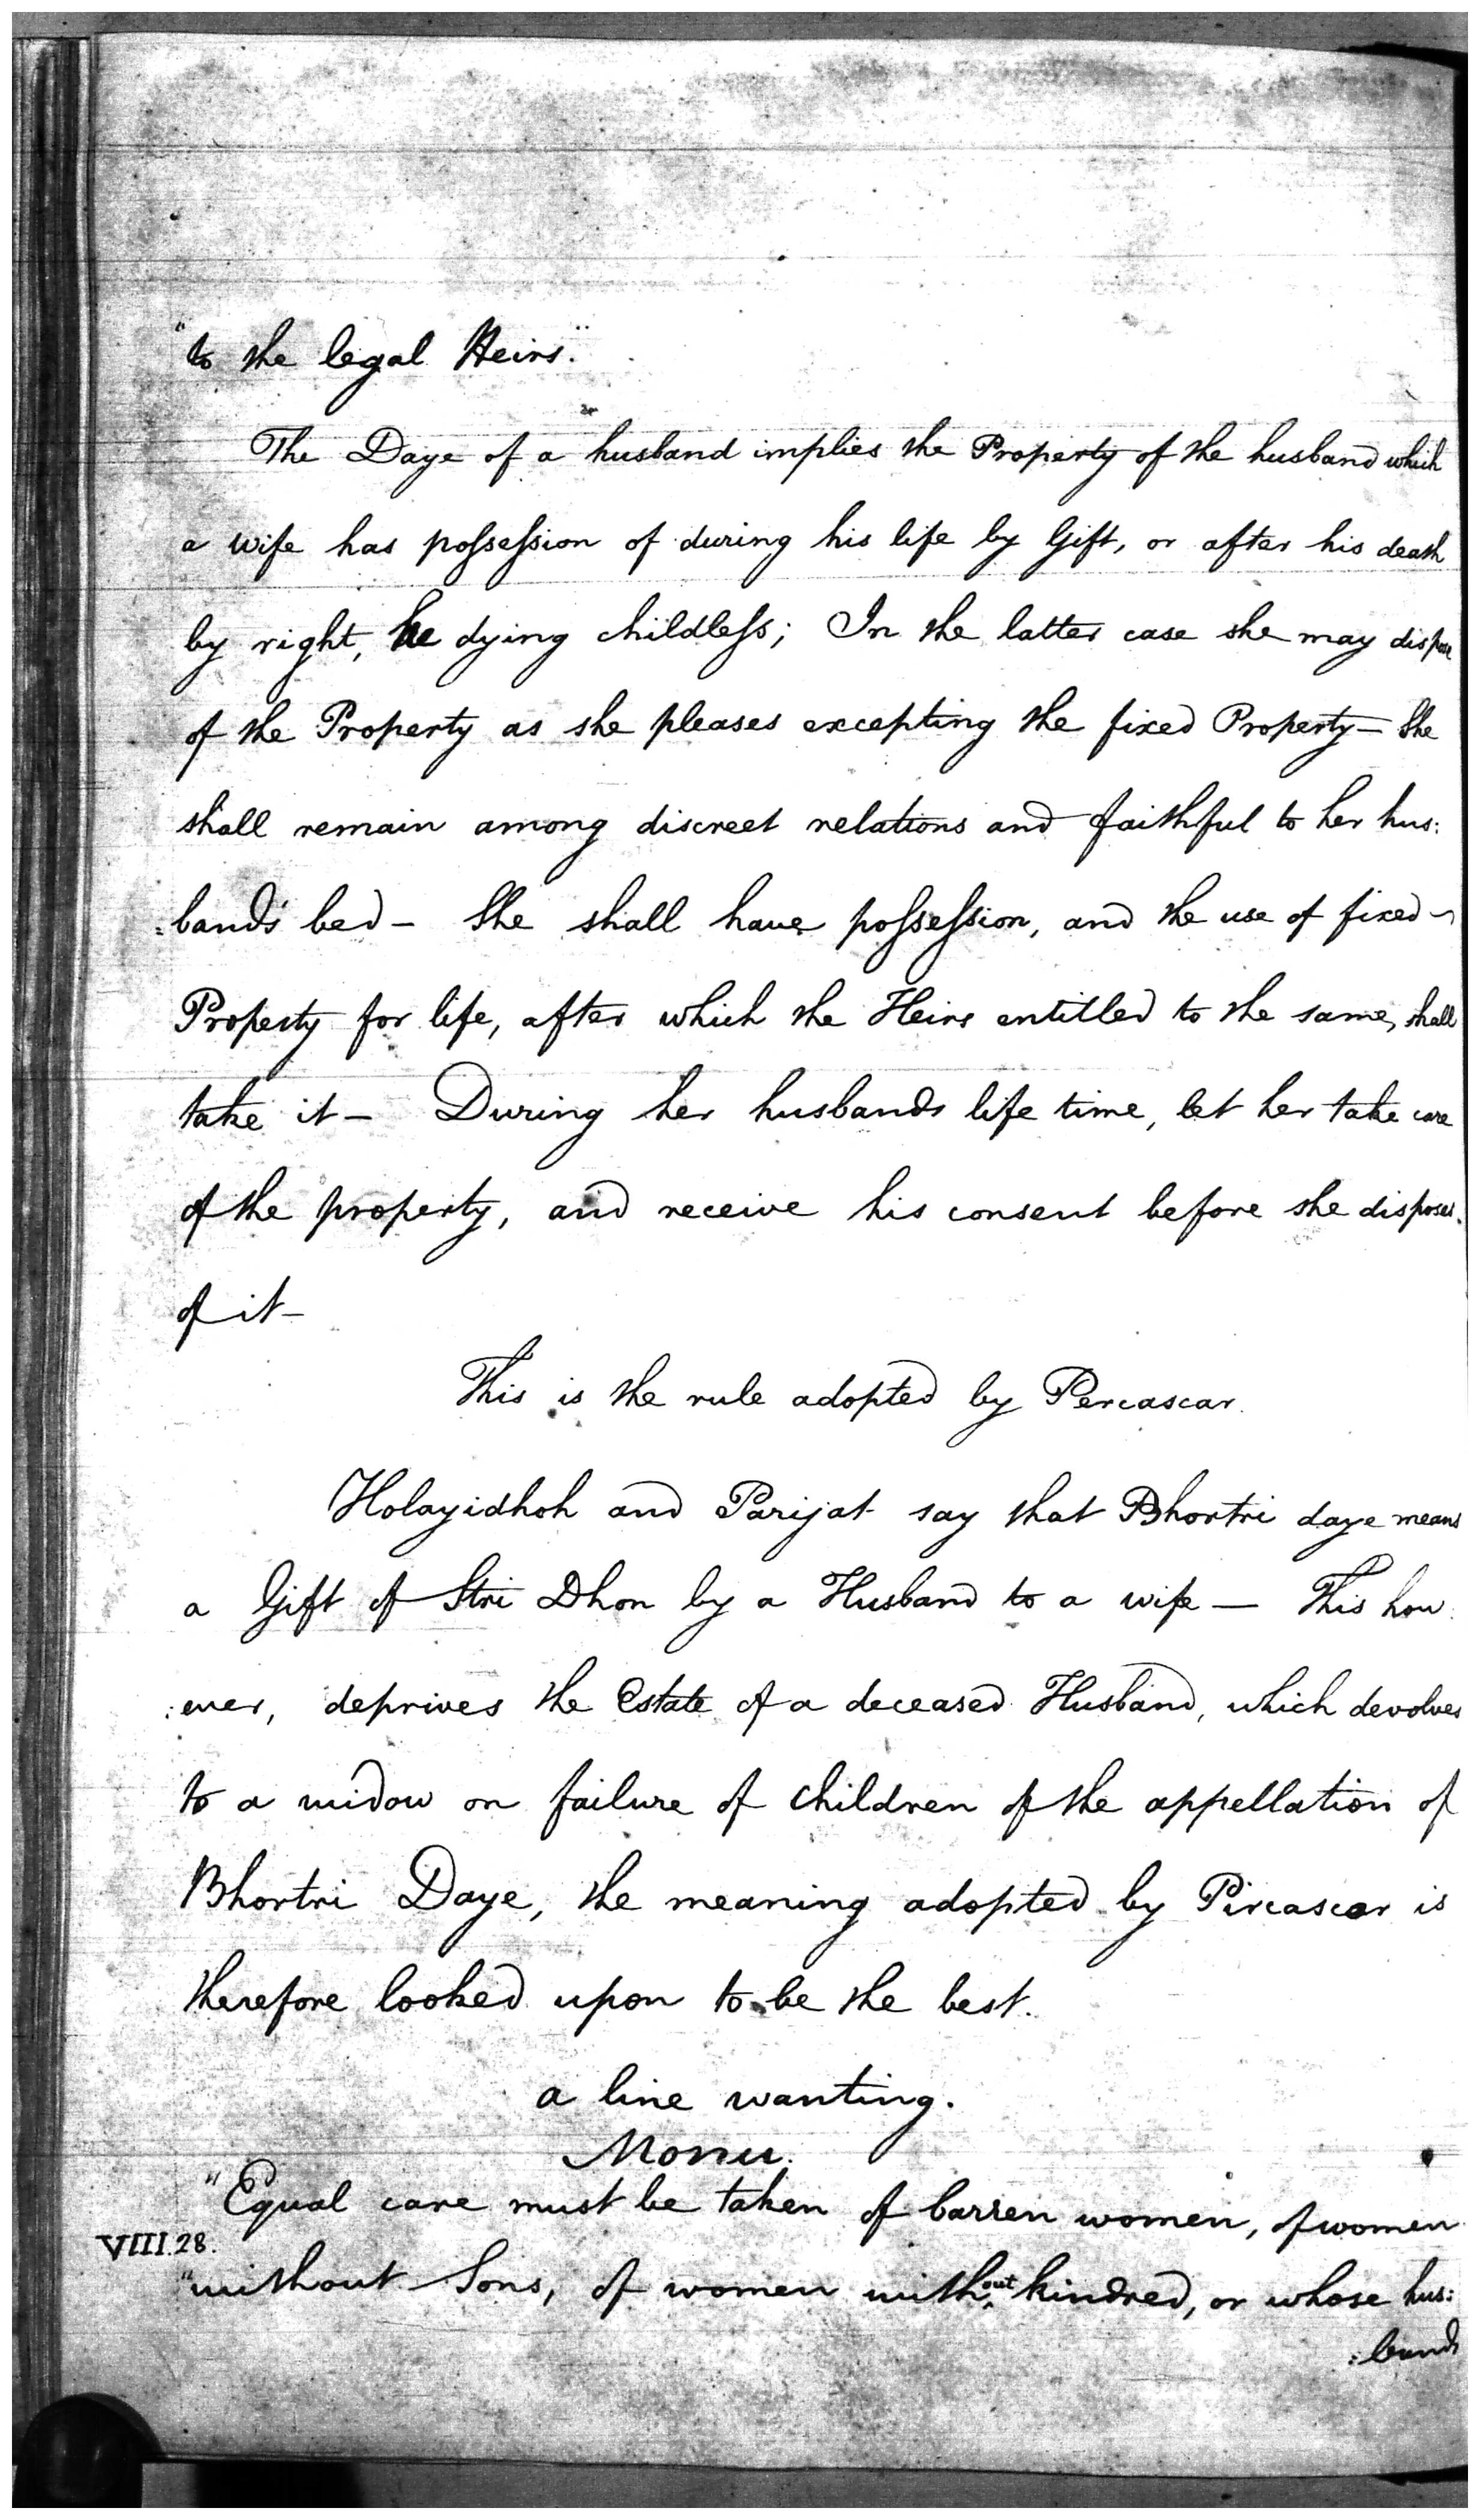 "to the legal Heirs."
The Daye of a husband implies the Property of the husband which
a wife has possession of during his life by Gift, or after his death
by right, he dying childless; In the latter case she may dispose
of the Property as she pleases excepting the fixed Property— She
shall remain among discreet relations and faithful to her hus:
:band's bed— She shall have possession, and the use of fixed
Property for life, after which the Heirs entitled to the same, shall
take it— During her husbands life time, let her take care
of the property, and receive his consent before she disposes
of it—
This is the rule adopted by Percascar.
Holayidhoh and Parijat say that Bhortri daye means
a Gift of Stri Dhon by a Husband to a wife— This how:
:ever, deprives the Estate of a deceased Husband, which devolves
to a widow on failure of Children of the appellation of
Bhortri Daye, the meaning adopted by Pircascar is
therefore looked upon to be the best.
a line wanting.
Monu.
"Equal care must be taken of barren women, of women
VIII.28.
"without Sons, of women without kindred, or whose hus:
:bands